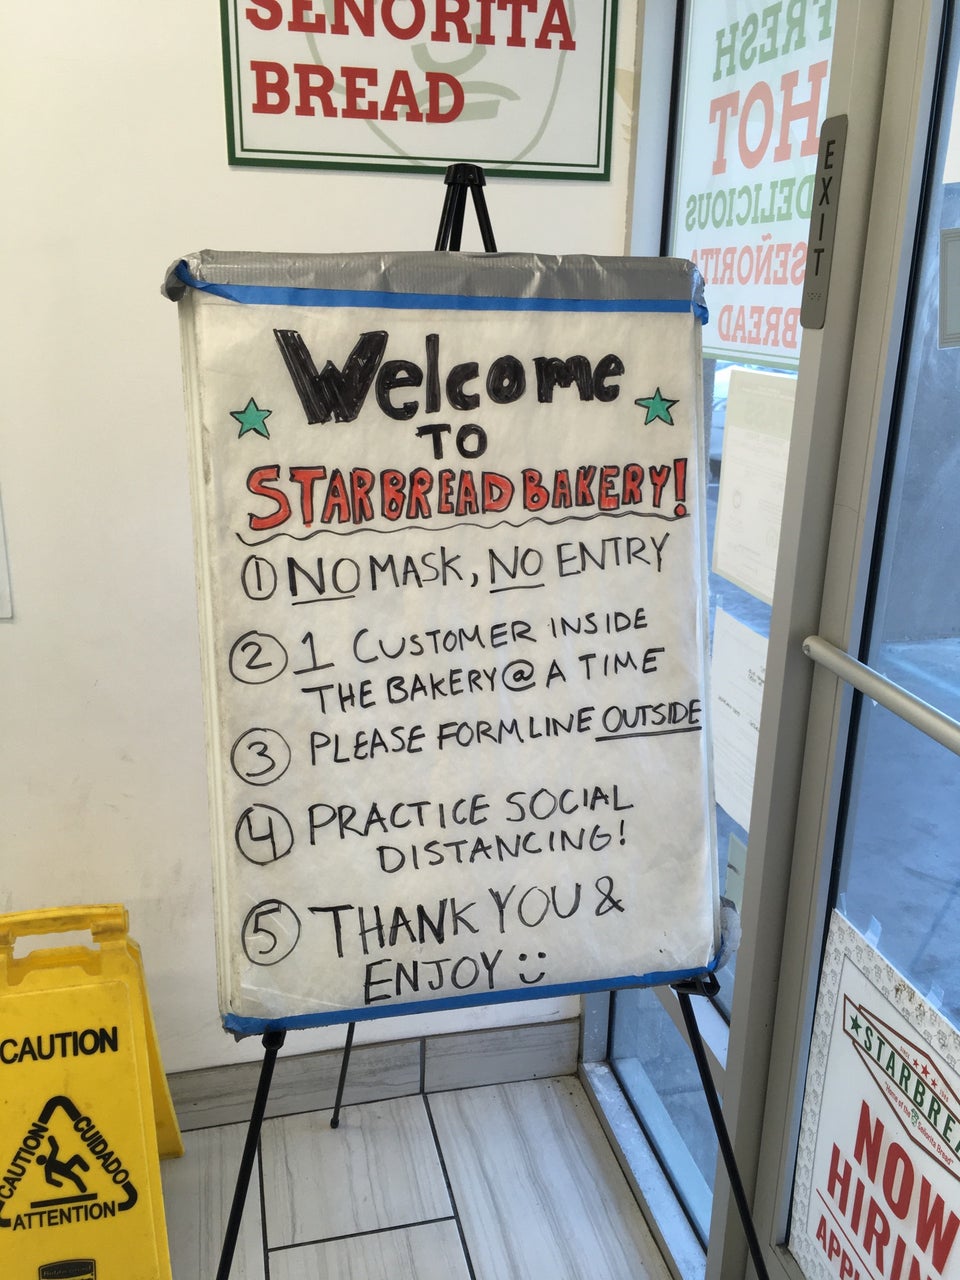 SEÑORITA
BREAD
FRESH
HOT
DELICIOUS
SEÑORITA
BREAD
EXIT
Welcome
TO
STARBREAD BAKERY!
① NO MASK, NO ENTRY
② 1 CUSTOMER INSIDE
THE BAKERY @ A TIME
③ PLEASE FORM LINE OUTSIDE
④ PRACTICE SOCIAL
DISTANCING!
⑤ THANK YOU &
ENJOY
CAUTION
CAUTION
CUIDADO
ATTENTION
STARBREA
"Home of the Señorita Bread"
NOW
HIRIN
APP